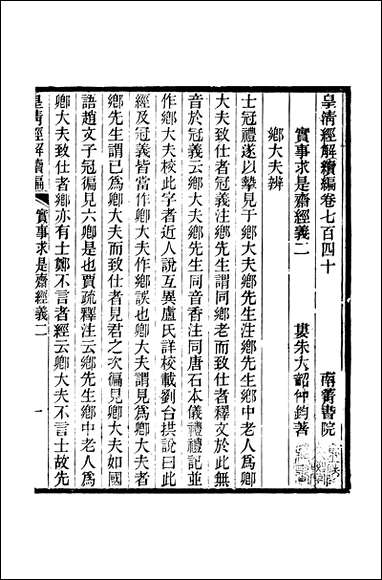 皇清經解續編卷七百四十
南菁書院
實事求是齋經義二
婁朱大韶仲鈞著
鄉大夫辨
士冠禮遂以摯見于鄉大夫鄉先生注鄉先生鄉中老人爲卿
大夫致仕者冠義注鄉先生謂同鄉老而致仕者釋文於此無
音於冠義云鄉大夫鄉先生同音香注同唐石本儀禮禮記並
作鄉大夫校此字者近人說互異盧氏詳校載劉台拱說曰此
經及冠義皆當作卿大夫作鄉誤也卿大夫謂見爲卿大夫者
鄉先生謂已爲卿大夫而致仕者見君之次徧見卿大夫如國
語趙文子冠徧見六卿是也賈疏釋注云鄉先生鄉中老人爲
卿大夫致仕者鄉亦有士鄭不言者經云卿大夫不言士故先
皇清經解續編
實事求是齋經義二
一